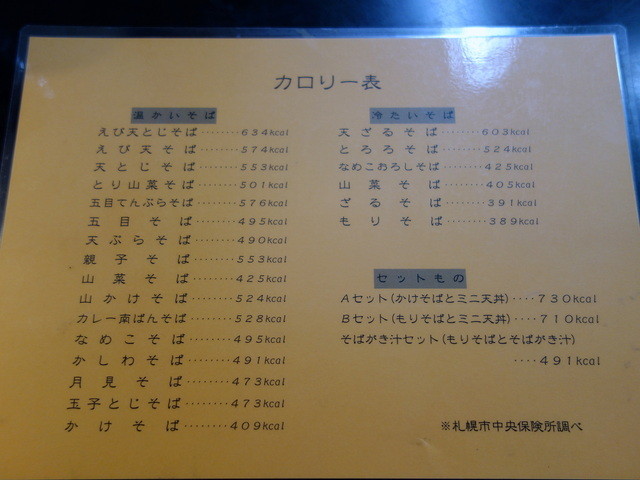 カロリー表
温かいそば
えび天とじそば‥‥‥‥634kcal
えび天そば‥‥‥‥574kcal
天とじそば‥‥‥‥553kcal
とり山菜そば‥‥‥‥501kcal
五目てんぷらそば‥‥‥‥576kcal
五目そば‥‥‥‥495kcal
天ぷらそば‥‥‥‥490kcal
親子そば‥‥‥‥553kcal
山菜そば‥‥‥‥425kcal
山かけそば‥‥‥‥524kcal
カレー南ばんそば‥‥‥‥528kcal
なめこそば‥‥‥‥495kcal
かしわそば‥‥‥‥491kcal
月見そば‥‥‥‥473kcal
玉子とじそば‥‥‥‥473kcal
かけそば‥‥‥‥409kcal
冷たいそば
天ざるそば‥‥‥‥603kcal
とろろそば‥‥‥‥524kcal
なめこおろしそば‥‥‥‥425kcal
山菜そば‥‥‥‥405kcal
ざるそば‥‥‥‥391kcal
もりそば‥‥‥‥389kcal
セットもの
Aセット(かけそばとミニ天丼)‥‥730kcal
Bセット(もりそばとミニ天丼)‥‥710kcal
そばがき汁セット(もりそばとそばがき汁)
‥‥491kcal
※札幌市中央保険所調べ